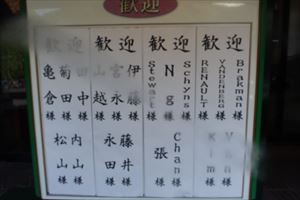 歓迎
歓迎
Brakman様
VANDENBERG様
RENAULT様
Kim様
歓迎
Schyns様
Ng様
Stewart様
Chan様
張様
歓迎
伊藤様
宮永様
山越様
藤井様
永田様
歓迎
田中様
菊田様
亀倉様
内山様
松山様